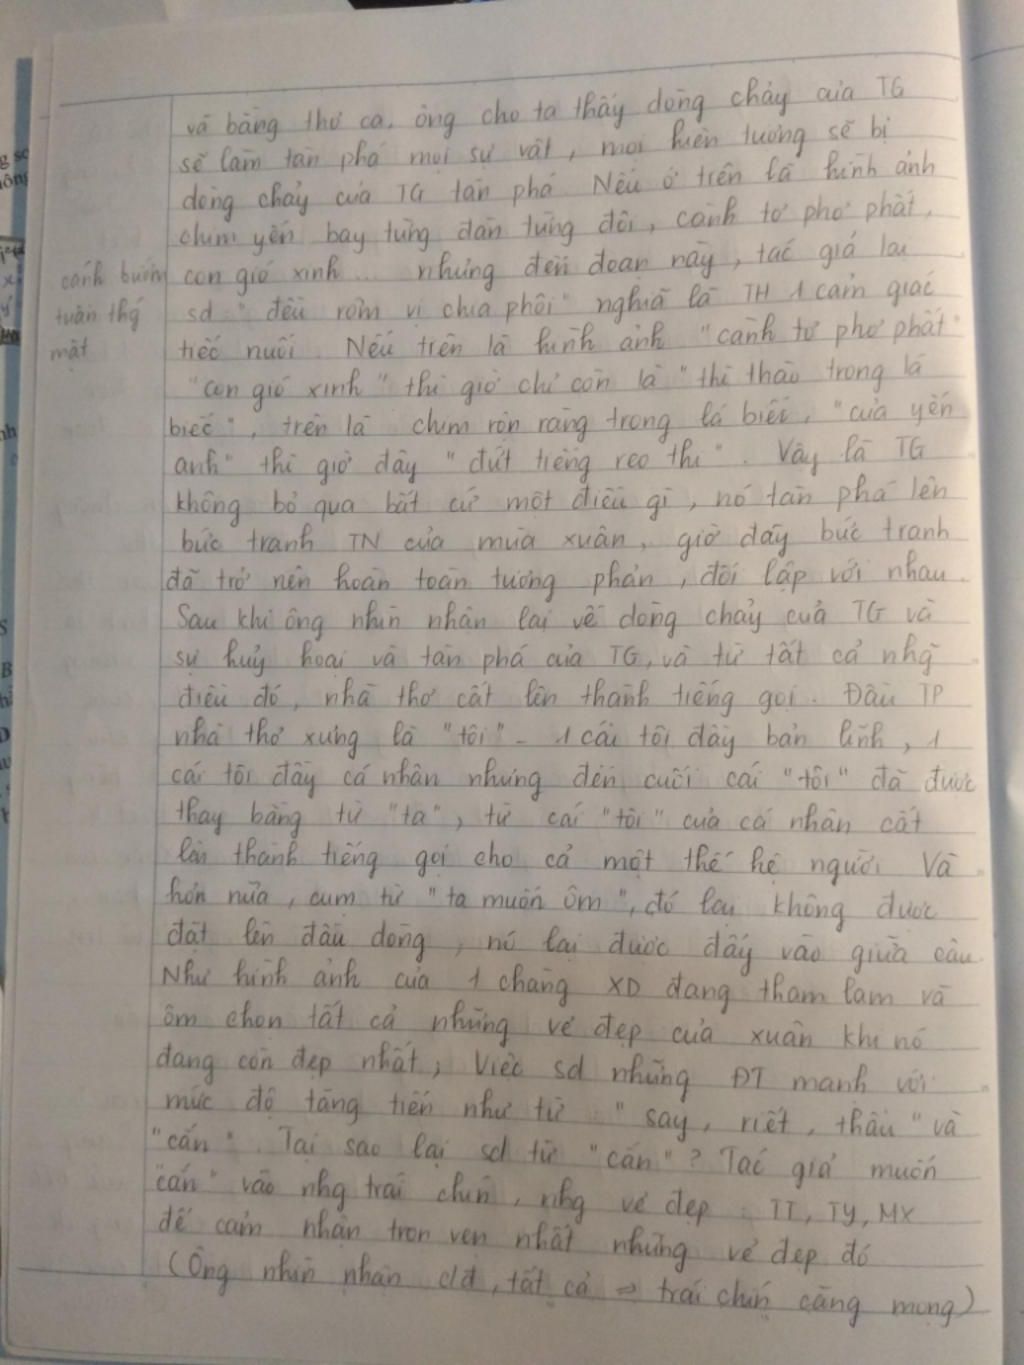 và bằng thơ ca, ông cho ta thấy dòng chảy của TG
sẽ làm tàn phá mọi sự vật, mọi hiện tượng sẽ bị
dòng chảy của TG tàn phá Nếu ở trên là hình ảnh
chim yến bay từng đàn từng đôi, cành tơ phơ phất,
con gió xinh ... nhưng đến đoạn này, tác giả lại
sd " đều rớm vị chia phôi" nghĩa là TH 1 cảm giác
tiếc nuối. Nếu trên là hình ảnh "cành tơ phơ phất"
"con gió xinh" thì giờ chỉ còn là "thì thào trong lá
biếc", trên là chim rộn ràng trong lá biếc, "của yến
anh" thì giờ đây "đứt tiếng reo thi". Vậy là TG
không bỏ qua bất cứ một điều gì, nó tàn phá lên
bức tranh TN của mùa xuân, giờ đây bức tranh
đã trở nên hoàn toàn tương phản, đối lập với nhau.
Sau khi ông nhìn nhận lại về dòng chảy của TG và
sự huỷ hoại và tàn phá của TG, và từ tất cả nhg̃
điều đó, nhà thơ cất lên thành tiếng gọi. Đầu TP
nhà thơ xưng là "tôi" - 1 cái tôi đầy bản lĩnh, 1
cái tôi đầy cá nhân nhưng đến cuối cái "tôi" đã được
thay bằng từ "ta", từ cái "tôi" của cá nhân cất
lên thành tiếng gọi cho cả một thế hệ người Và
hơn nữa, cụm từ "ta muốn ôm", đó lại không được
đặt lên đầu dòng, nó lại được đẩy vào giữa câu.
Như hình ảnh của 1 chàng XD đang tham lam và
ôm chọn tất cả những vẻ đẹp của xuân khi nó
đang còn đẹp nhất, Việc sd những ĐT mạnh với
mức độ tăng tiến như từ : "say, riết, thâu" và
"cắn". Tại sao lại sd từ "cắn"? Tác giả muốn
"cắn" vào nhg trái chín, nhg vẻ đẹp : TT, TY, MX
để cảm nhận trọn vẹn nhất những vẻ đẹp đó
(Ông nhìn nhận c/đ, tất cả => trái chín căng mọng)
cánh bướm
tuần thg
mật